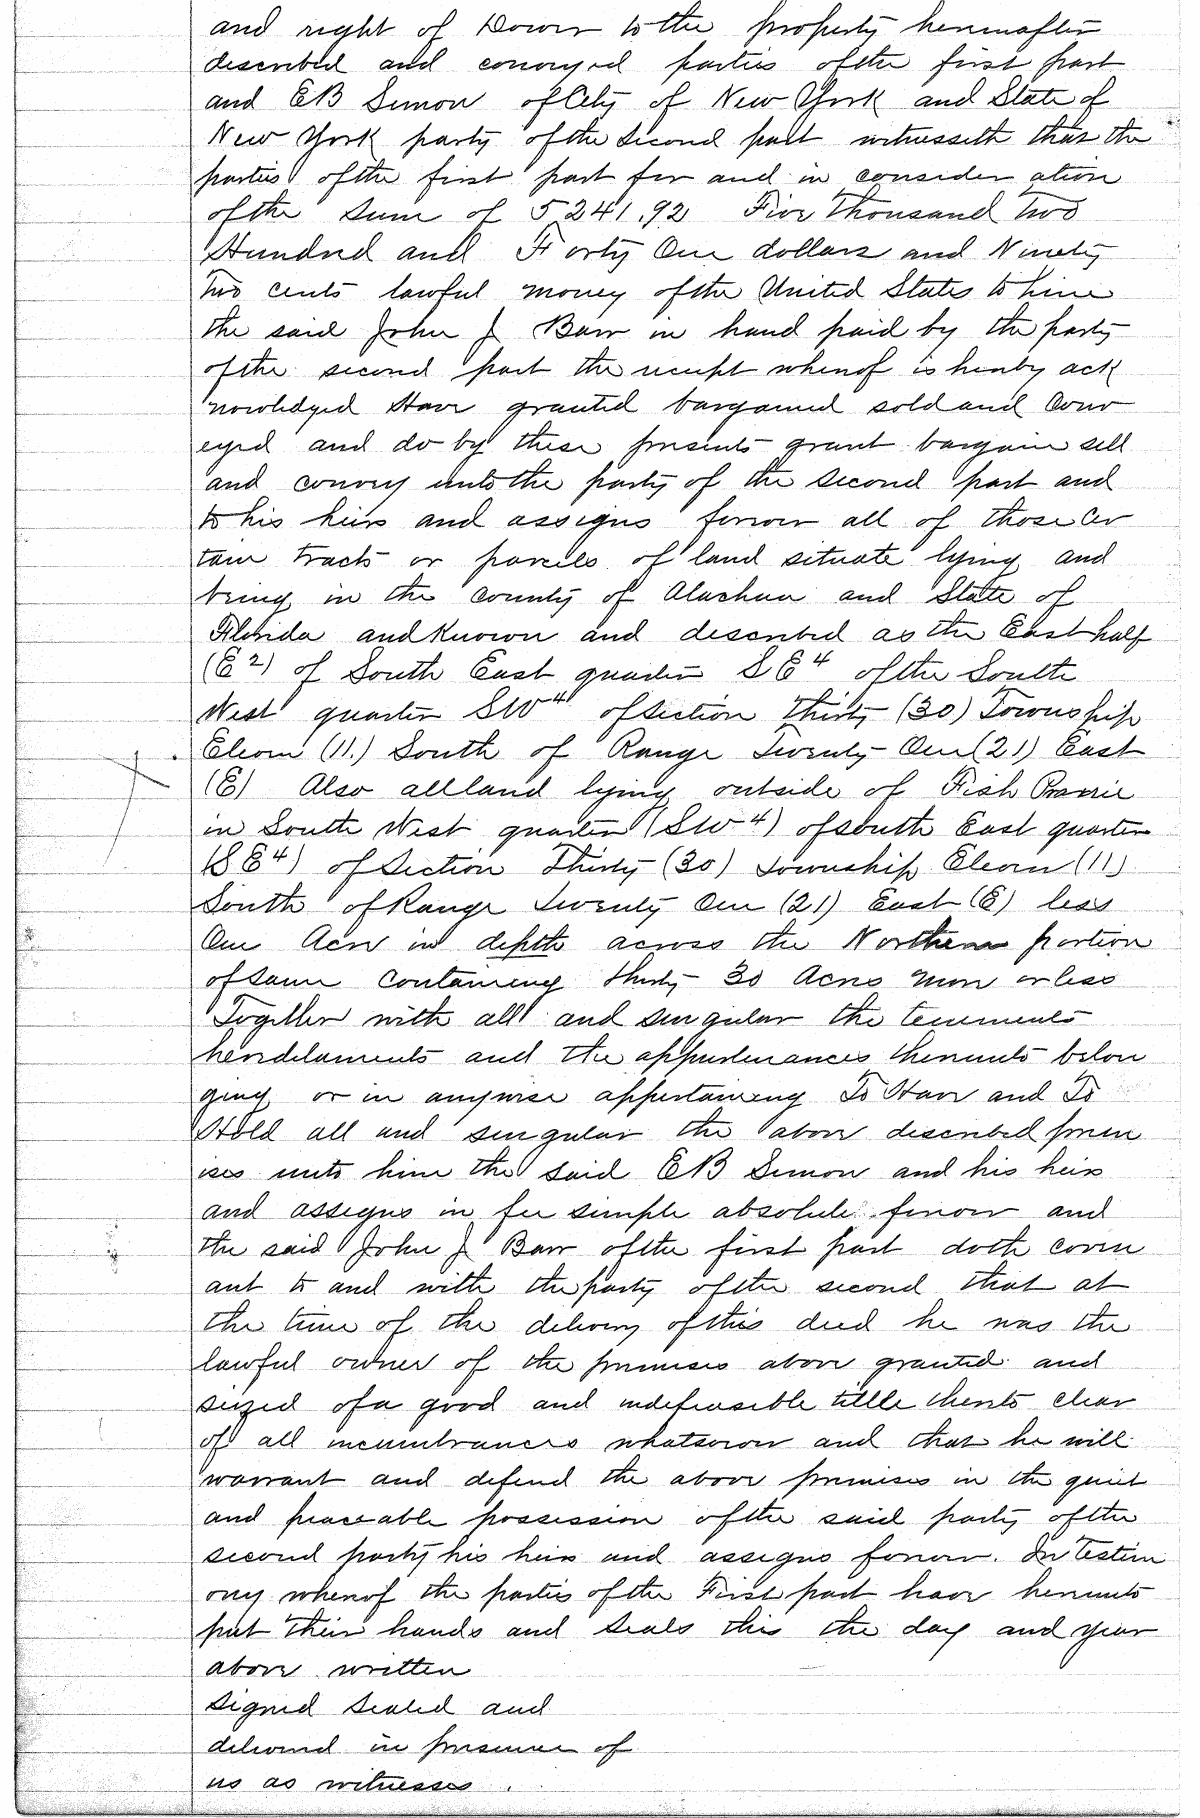 and right of Dower to the property hereinafter
described and conveyed parties of the first part
and E B Simon of City of New York and State of
New York party of the Second part witnesseth that the
parties of the first part for and in consider ation
of the Sum of 5241.92 Five Thousand Two
Hundred and Forty One dollars and Ninety
Two cents lawful money of the United States to him
the said John J Barr in hand paid by the party
of the second part the receipt whereof is hereby ack
nowledged Have granted bargained sold and Conv
eyed and do by these presents grant bargain sell
and convey unto the party of the Second part and
to his heirs and assigns forever all of those Cer
tain tracts or parcels of land situate lying and
being in the County of Alachua and State of
Florida and Known and described as the East half
(E2) of South East quarter S E4 of the South
West quarter SW4 of Section Thirty (30) Township
Eleven (11.) South of Range Twenty One (21) East
(E) Also all land lying outside of Fish Prairie
in South West quarter (SW4) of south East quarter
(S E4) of Section Thirty (30) Township Eleven (11)
South of Range Twenty One (21) East (E) less
One Acre in depth across the Northern portion
of same Containing thirty 30 Acres more or less
Together with all and singular the tenements
hereditaments and the appurtenances thereunto belon
ging or in anywise appertaining To Have and To
Hold all and singular the above described prem
ises unto him the said E B Simon and his heirs
and assigns in fee simple absolute forever and
the said John J Barr of the first part doth coven
ant to and with the party of the second that at
the time of the delivery of this deed he was the
lawful owner of the premises above granted and
seized of a good and indefeasible tittle thereto clear
of all incumbrances whatsoever and that he will
warrant and defend the above premises in the quiet
and peaceable possession of the said party of the
second party his heirs and assigns forever. In Testim
ony whereof the parties of the First part have hereunto
put their hands and Seals this the day and year
above written
Signed Sealed and
delivered in presence of
us as witnesses.